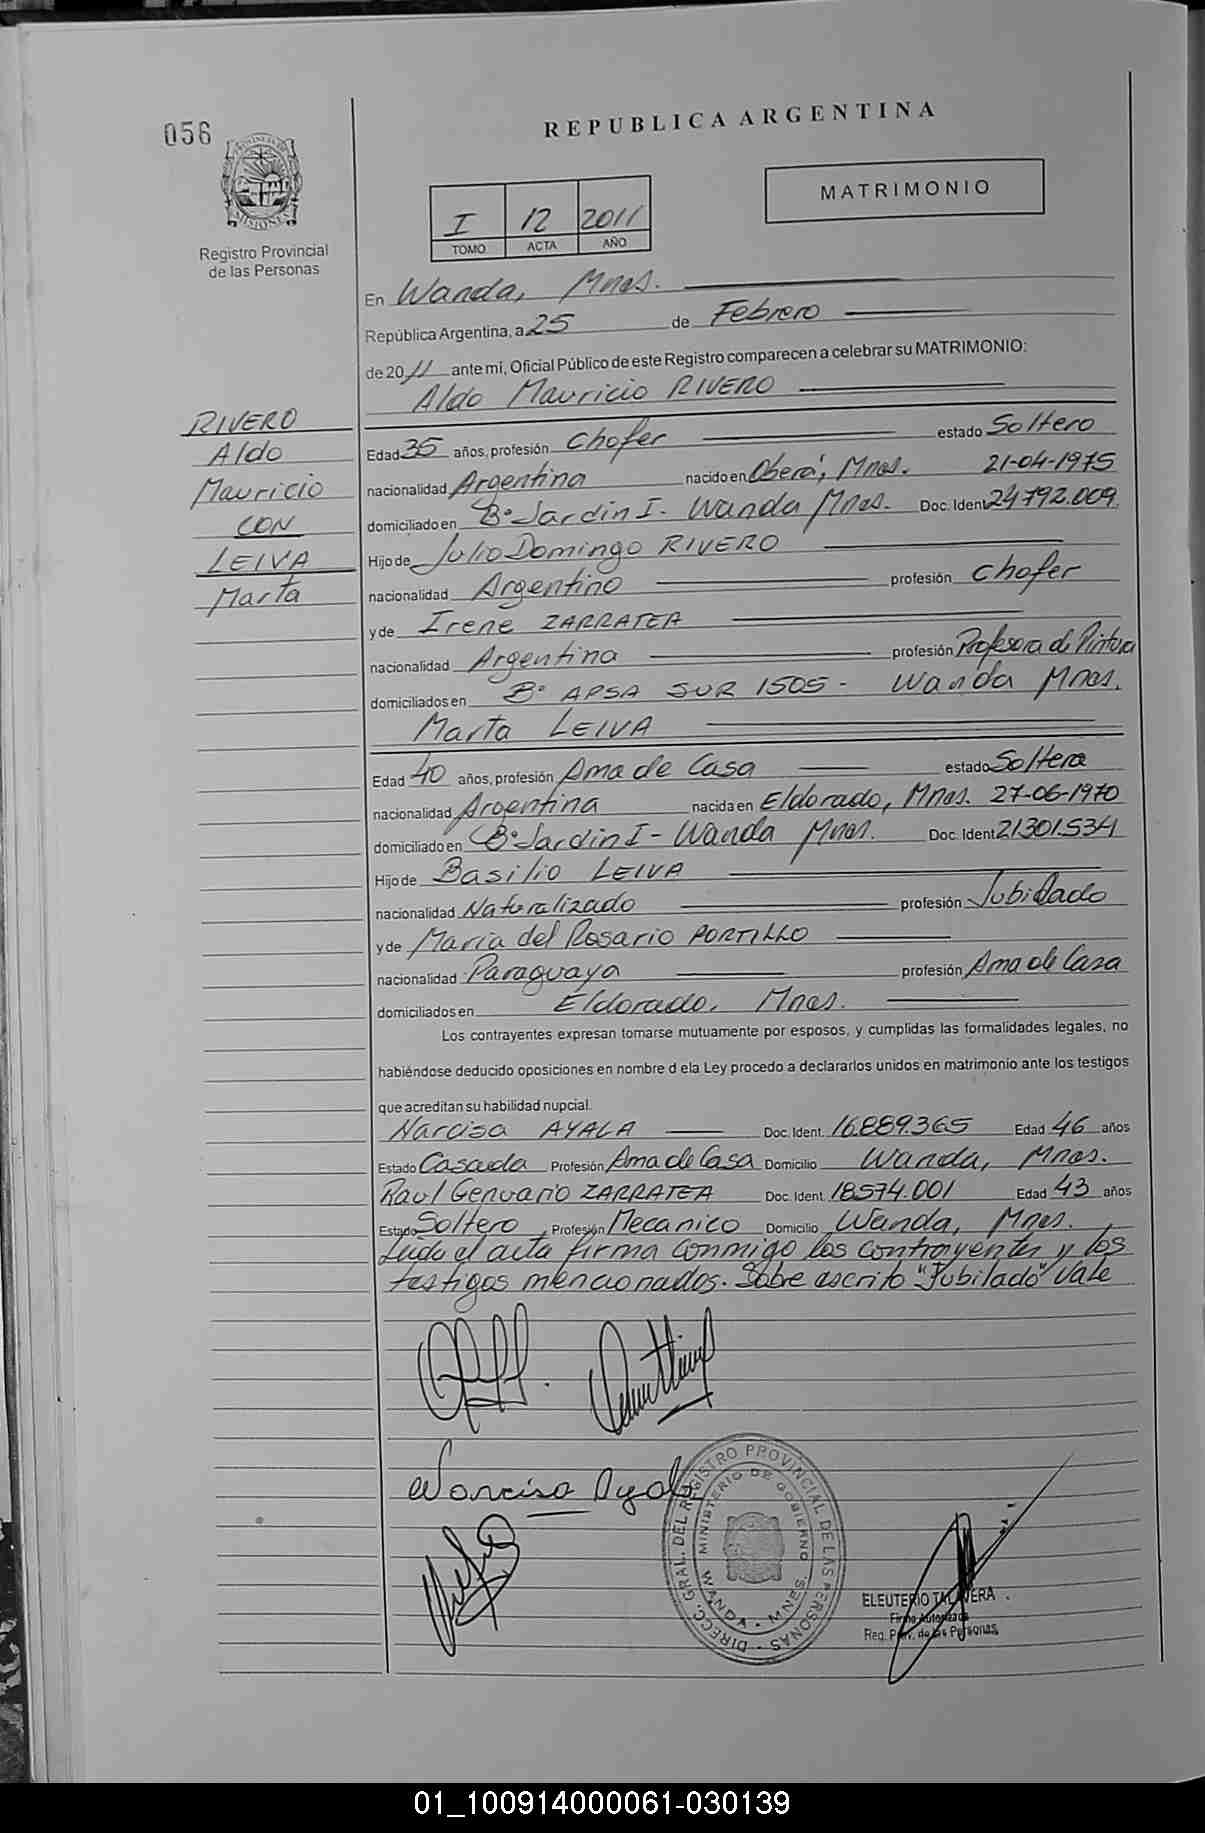 056
REPUBLICA ARGENTINA
MATRIMONIO
I 12 2011
TOMO ACTA AÑO
Registro Provincial
de las Personas
En Wanda, Mnes.
República Argentina, a 25 de Febrero
de 2011 ante mí, Oficial Público de este Registro comparecen a celebrar su MATRIMONIO:
Aldo Mauricio RIVERO
RIVERO
Aldo
Mauricio
CON
LEIVA
Marta
Edad 35 años, profesión Chofer estado Soltero
nacionalidad Argentina nacido en Oberá, Mnes. 21-04-1975
domiciliado en B° Jardin I - Wanda Mnes. Doc. Ident 24792.009
Hijo de Julio Domingo RIVERO
nacionalidad Argentino profesión chofer
y de Irene ZARRATEA
nacionalidad Argentina profesión Profesora de Pintura
domiciliados en B° APSA SUR 1505 - Wanda Mnes.
Marta LEIVA
Edad 40 años, profesión Ama de Casa estado Soltera
nacionalidad Argentina nacida en Eldorado, Mnes. 27-06-1970
domiciliado en B° Jardin I - Wanda Mnes. Doc. Ident 21301.534
Hijo de Basilio LEIVA
nacionalidad Naturalizado profesión Jubilado
y de María del Rosario PORTILLO
nacionalidad Paraguaya profesión Ama de Casa
domiciliados en Eldorado, Mnes.
Los contrayentes expresan tomarse mutuamente por esposos, y cumplidas las formalidades legales, no
habiéndose deducido oposiciones en nombre d ela Ley procedo a declararlos unidos en matrimonio ante los testigos
que acreditan su habilidad nupcial.
Narcisa AYALA Doc. Ident. 16.889.365 Edad 46 años
Estado Casada Profesión Ama de Casa Domicilio Wanda, Mnes.
Raul Genuario ZARRATEA Doc. Ident. 18574.001 Edad 43 años
Estado Soltero Profesión Mecanico Domicilio Wanda, Mnes.
Leido el acta firma conmigo los contrayentes y los
testigos mencionados. Sobre escrito "Jubilado" Vale
Narcisa Ayala
DIRECC. GRAL. DEL REGISTRO PROVINCIAL DE LAS PERSONAS
MINISTERIO DE GOBIERNO
WANDA - MNES.
ELEUTERIO TALAVERA
Firma Autorizada
Reg. Prov. de las Personas
01_100914000061-030139